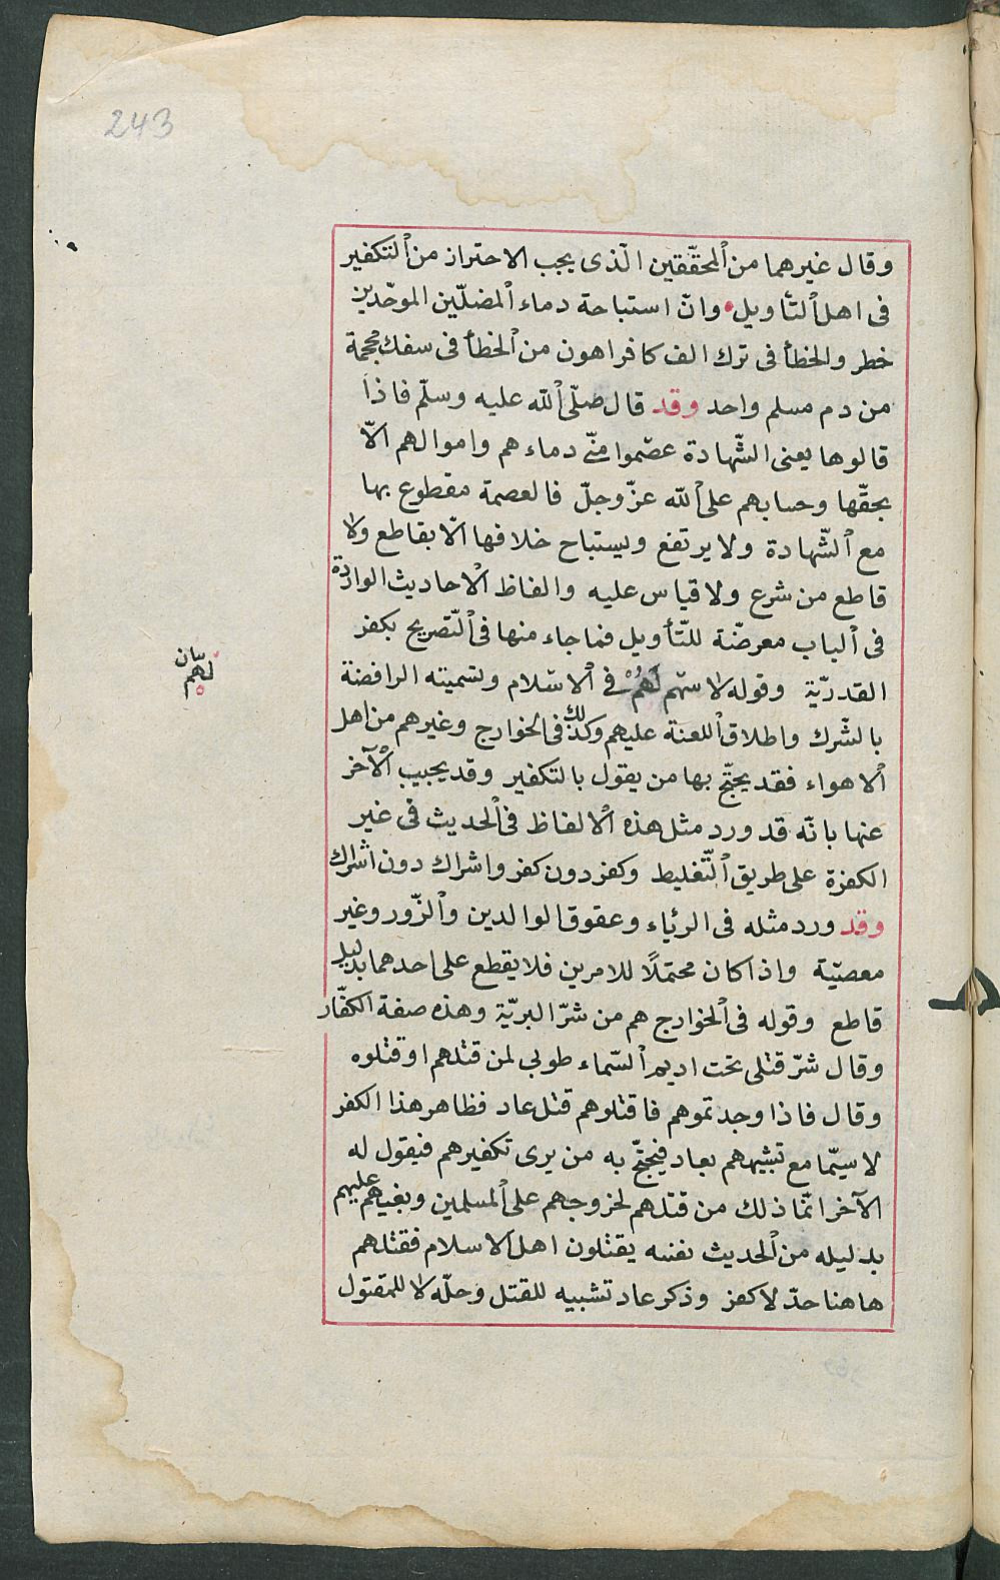 243
وقال غيرهما من المحقّقين الّذى يجب الاحتراز من التكفير
فى اهل التأويل وانّ استباحة دماء المضلّين الموحّدين
خطر والخطأ فى ترك الف كافر اهون من الخطأ فى سفك محجمة
من دم مسلم واحد وقد قال صلّى اللّه عليه وسلّم فاذا
قالوها يعنى الشّهادة عصموا منّى دماءهم واموالهم الّا
بحقّها وحسابهم على اللّه عزّ وجلّ فالعصمة مقطوع بها
مع الشّهادة ولا يرتفع ويستباح خلافها الّا بقاطع ولا
قاطع من شرع ولا قياس عليه والفاظ الاحاديث الواردة
فى الباب معرضّة للتّأويل فما جاء منها فى التّصريح بكفر
القدريّة وقوله لا سهم لهم فى الاسلام وتسميته الرافضة
بيان
لهم
بالشّرك واطلاق اللعنة عليهم وكذلك فى الخوارج وغيرهم من اهل
الاهواء فقد يحتجّ بها من يقول بالتكفير وقد يجيب الآخر
عنها بانّه قد ورد مثل هذه الالفاظ فى الحديث فى غير
الكفرة على طريق التّغليط وكفر دون كفر واشراك دون اشراك
وقد ورد مثله فى الرئاء وعقوق الوالدين والزّور وغير
معصيّة واذا كان محتملًا للامرين فلا يقطع على احدهما بدليل
قاطع وقوله فى الخوارج هم من شرّ البريّة وهذه صفة الكفّار
وقال شرّ قتلى تحت اديم السّماء طوبى لمن قتلهم او قتلوه
وقال فاذا وجدتموهم فاقتلوهم قتل عاد فظاهر هذا الكفر
لا سيّما مع تشبيههم بعاد فيحتجّ به من يرى تكفيرهم فيقول له
الآخر انّما ذلك من قتلهم لخروجهم على المسلمين وبغيهم عليهم
بدليله من الحديث نفسه يقتلون اهل الاسلام فقتلهم
هاهنا حدّ لا كفر وذكر عاد تشبيه للقتل وحلّه لا للمقتول